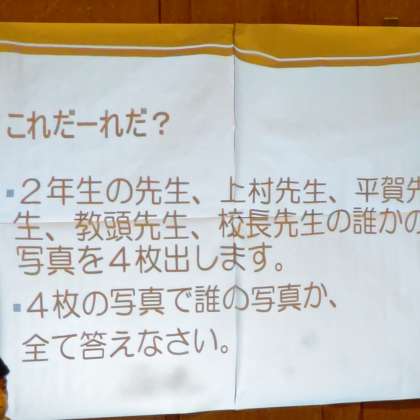 これだーれだ？
２年生の先生、上村先生、平賀先
生、教頭先生、校長先生の誰かの
写真を４枚出します。
４枚の写真で誰の写真か、
全て答えなさい。